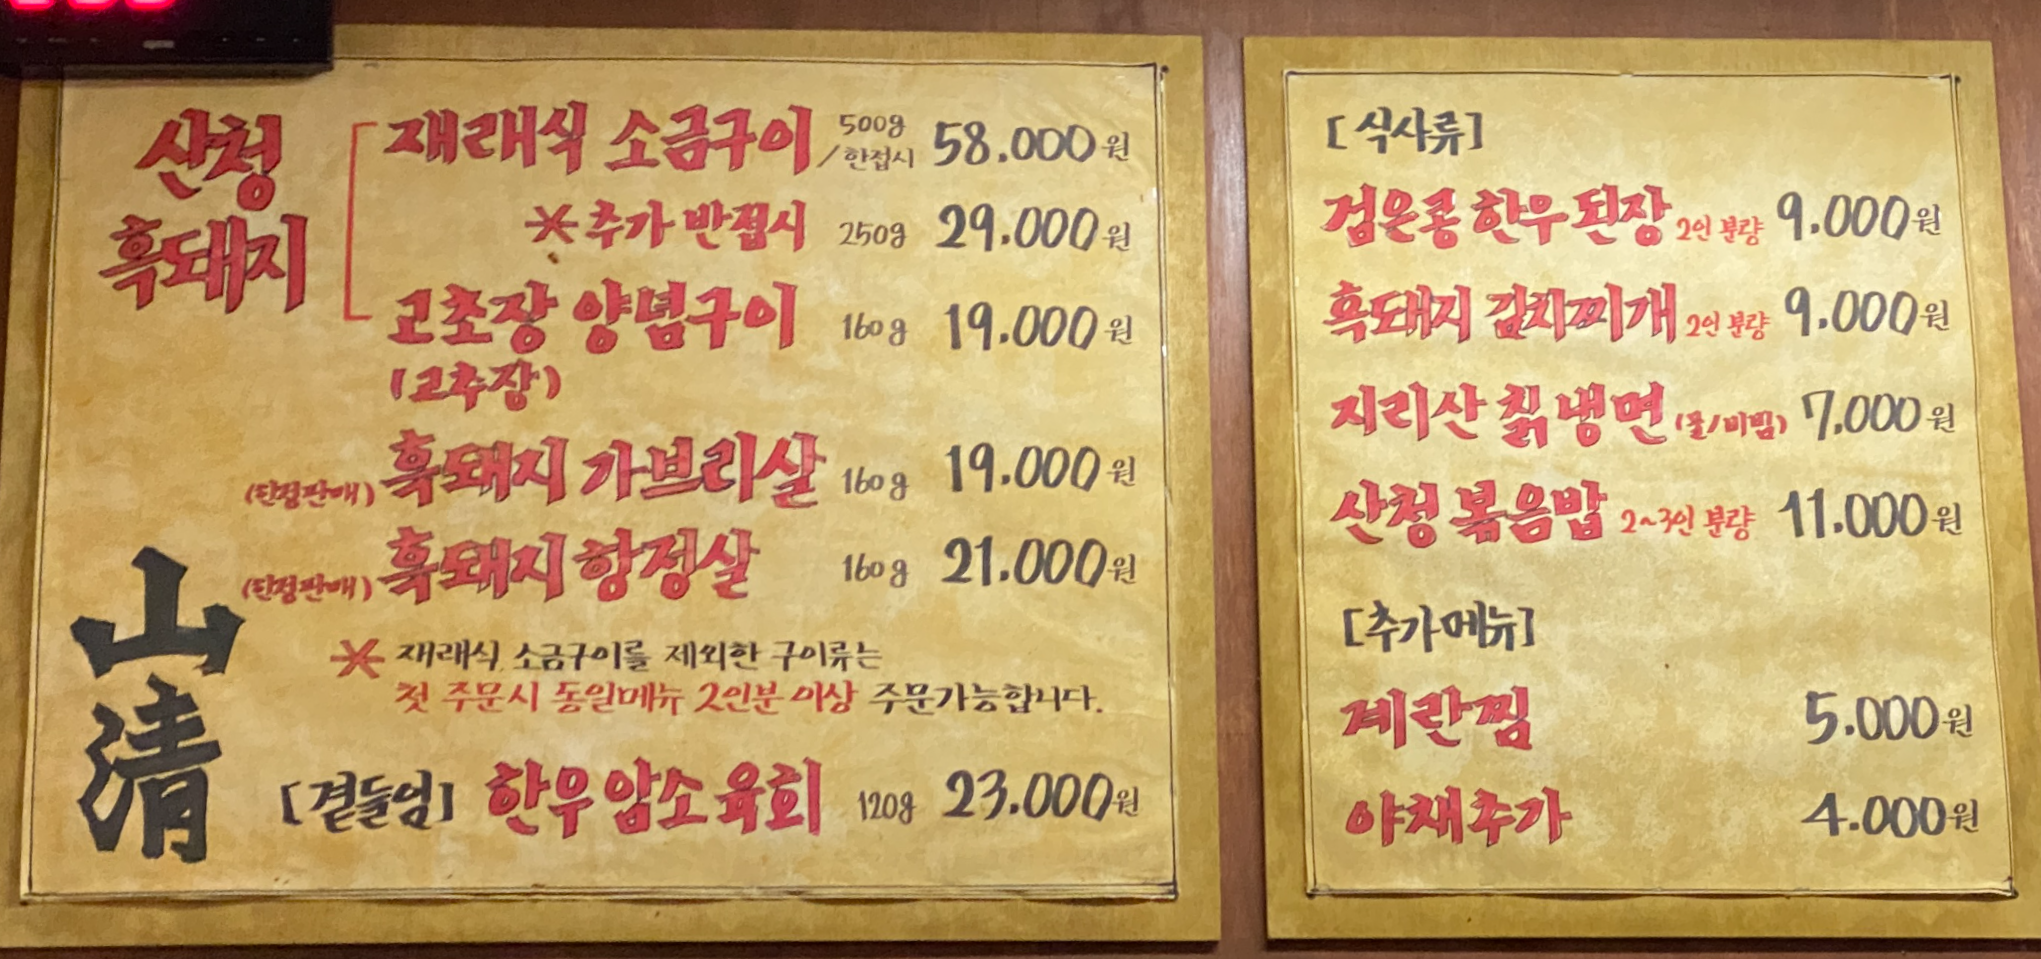 산청
흑돼지
재래식 소금구이 500g/한접시 58.000원
※추가 반접시 250g 29.000원
고초장 양념구이 160g 19.000원
(고추장)
(한정판매) 흑돼지 가브리살 160g 19.000원
(한정판매) 흑돼지 항정살 160g 21.000원
※ 재래식 소금구이를 제외한 구이류는
첫 주문시 동일메뉴 2인분 이상 주문가능합니다.
[곁들임] 한우암소육회 120g 23.000원
山清
[식사류]
검은콩 한우 된장 2인 분량 9.000원
흑돼지 김치찌개 2인 분량 9.000원
지리산 칡냉면 (물/비빔) 7.000원
산청 볶음밥 2~3인 분량 11.000원
[추가메뉴]
계란찜 5.000원
야채추가 4.000원